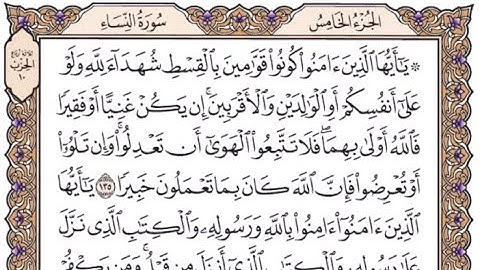 سُورَةُ النِّسَاء
الجُزْءُ الخَامِسُ
ثلاثة أرباع
الحزب
١٠
۞ يَٰٓأَيُّهَا ٱلَّذِينَ ءَامَنُوا۟ كُونُوا۟ قَوَّٰمِينَ بِٱلْقِسْطِ شُهَدَآءَ لِلَّهِ وَلَوْ
عَلَىٰٓ أَنفُسِكُمْ أَوِ ٱلْوَٰلِدَيْنِ وَٱلْأَقْرَبِينَ ۚ إِن يَكُنْ غَنِيًّا أَوْ فَقِيرًا
فَٱللَّهُ أَوْلَىٰ بِهِمَا ۖ فَلَا تَتَّبِعُوا۟ ٱلْهَوَىٰٓ أَن تَعْدِلُوا۟ ۚ وَإِن تَلْوُۥٓا۟
أَوْ تُعْرِضُوا۟ فَإِنَّ ٱللَّهَ كَانَ بِمَا تَعْمَلُونَ خَبِيرًا ١٣٥ يَٰٓأَيُّهَا
ٱلَّذِينَ ءَامَنُوٓا۟ ءَامِنُوا۟ بِٱللَّهِ وَرَسُولِهِۦ وَٱلْكِتَٰبِ ٱلَّذِى نَزَّلَ
عَلَىٰ رَسُولِهِۦ وَٱلْكِتَٰبِ ٱلَّذِىٓ أَنزَلَ مِن قَبْلُ ۚ وَمَن يَكْفُرْ